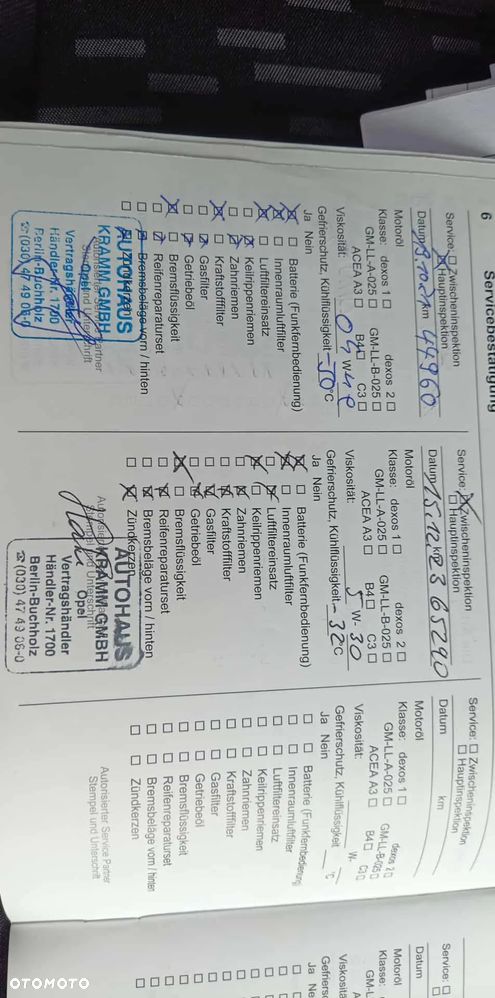 6
Servicebestätigung
Service: ☐ Zwischeninspektion
☒ Hauptinspektion
Datum 19.10.21 km 44960
Motoröl
Klasse: dexos 1 ☐ dexos 2 ☐
GM-LL-A-025 ☐ GM-LL-B-025 ☐
ACEA A3 ☐ B4 ☐ C3 ☐
Viskosität: 0W40
Gefrierschutz, Kühlflüssigkeit -50 °C
Ja Nein
Batterie (Funkfernbedienung)
Innenraumluftfilter
Luftfiltereinsatz
Keilrippenriemen
Zahnriemen
Kraftstofffilter
Gasfilter
Getriebeöl
Bremsflüssigkeit
Reifenreparaturset
Bremsbeläge vorn / hinten
Autorisierter Service Partner
Stempel und Unterschrift
AUTOHAUS
KRAMM GMBH
Opel
Vertragshändler
Händler-Nr. 1700
Berlin-Buchholz
☎ (030) 47 49 06-0
Service: ☒ Zwischeninspektion
☐ Hauptinspektion
Datum 15.12.23 km 65290
Motoröl
Klasse: dexos 1 ☐ dexos 2 ☐
GM-LL-A-025 ☐ GM-LL-B-025 ☐
ACEA A3 ☐ B4 ☐ C3 ☐
Viskosität: 5 W-30
Gefrierschutz, Kühlflüssigkeit -32 °C
Ja Nein
Batterie (Funkfernbedienung)
Innenraumluftfilter
Luftfiltereinsatz
Keilrippenriemen
Zahnriemen
Kraftstofffilter
Gasfilter
Getriebeöl
Bremsflüssigkeit
Reifenreparaturset
Bremsbeläge vorn / hinten
Zündkerzen
Autorisierter
Stempel und Unterschrift
AUTOHAUS
KRAMM GMBH
Opel
Vertragshändler
Händler-Nr. 1700
Berlin-Buchholz
☎ (030) 47 49 06-0
Service: ☐ Zwischeninspektion
☐ Hauptinspektion
Datum km
Motoröl
Klasse: dexos 1 ☐ dexos 2 ☐
GM-LL-A-025 ☐ GM-LL-B-025 ☐
ACEA A3 ☐ B4 ☐ C3 ☐
Viskosität: W-
Gefrierschutz, Kühlflüssigkeit °C
Ja Nein
☐ ☐ Batterie (Funkfernbedienung
☐ ☐ Innenraumluftfilter
☐ ☐ Luftfiltereinsatz
☐ ☐ Keilrippenriemen
☐ ☐ Zahnriemen
☐ ☐ Kraftstofffilter
☐ ☐ Gasfilter
☐ ☐ Getriebeöl
☐ ☐ Bremsflüssigkeit
☐ ☐ Reifenreparaturset
☐ ☐ Bremsbeläge vorn / hinten
☐ ☐ Zündkerzen
Autorisierter Service Partner
Stempel und Unterschrift
Service: ☐
☐
Datum
Motoröl
Klasse: d
GM-L
ACE
Viskosität:
Gefriersc
Ja Nein
OTOMOTO